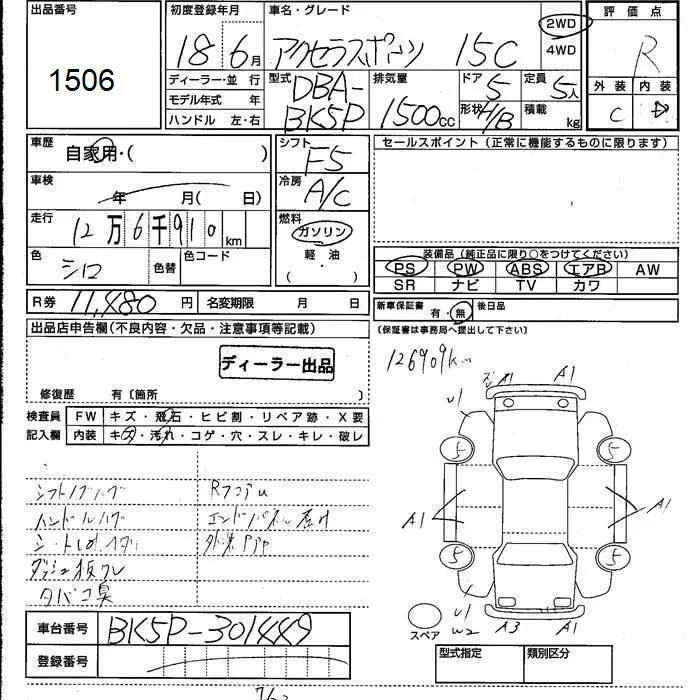 出品番号
1506
初度登録年月
18 6月
車名・グレード
アクセラスポーツ 15C
2WD
4WD
評価点
R
外装 内装
C D
ディーラー・並行
モデル年式 年
ハンドル 左・右
型式
DBA-
BK5P
排気量
1500cc
ドア 5
形状 H/B
定員 5人
積載 kg
車歴
自家用・( )
シフト
F5
車検
年 月( 日)
冷房
A/C
走行
12万6千910km
燃料
ガソリン
軽油
( ・ )
色
シロ
色替
色コード
セールスポイント (正常に機能するものに限ります)
装備品 (純正品に限り○をつけてください)
PS PW ABS エアB AW
SR ナビ TV カワ
R券 11,480円
名変期限 月 日
新車保証書 有・無
後日品
(保証書は事務局へ提出して下さい)
出品店申告欄(不良内容・欠品・注意事項等記載)
ディーラー出品
修復歴 有〔箇所 〕
検査員
記入欄
FW キズ・飛石・ヒビ割・リペア跡・X要
内装 キズ・汚れ・コゲ・穴・スレ・キレ・破レ
シフトノブハゲ
ハンドルハゲ
ダッシュ板ワレ
タバコ臭
Rフロアu
126909km
A1 A1
U1
5 5
A1 A1
5 5
U1
W2
A3 A1
スペア
車台番号
BK5P-301449
登録番号
型式指定
類別区分